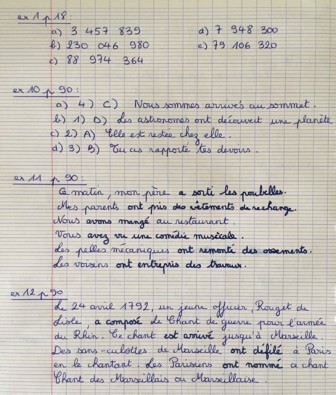 ex 1 p 18 :
a) 3 457 839 d) 7 948 300
b) 230 046 980 e) 79 106 320
c) 88 974 364
ex 10 p 90 :
a) 4) C) Nous sommes arrivés au sommet.
b) 1) D) Les astronomes ont découvert une planète
c) 2) A) Elle est restée chez elle.
d) 3) B) Tu as rapporté tes devoirs.
ex 11 p 90 :
Ce matin, mon père a sorti les poubelles.
Mes parents ont pris des vêtements de rechange.
Nous avons mangé au restaurant.
Vous avez vu une comédie musicale.
Les pelles mécaniques ont remonté des ossements.
Les voisins ont entrepris des travaux.
ex 12 p 90
Le 24 avril 1792, un jeune officier, Rouget de
Lisle, a composé le Chant de guerre pour l'armée
du Rhin. Ce chant est arrivé jusqu'à Marseille.
Des sans-culottes de Marseille ont défilé à Paris
en le chantant. Les Parisiens ont nommé ce chant
Chant des Marseillais ou Marseillaise.